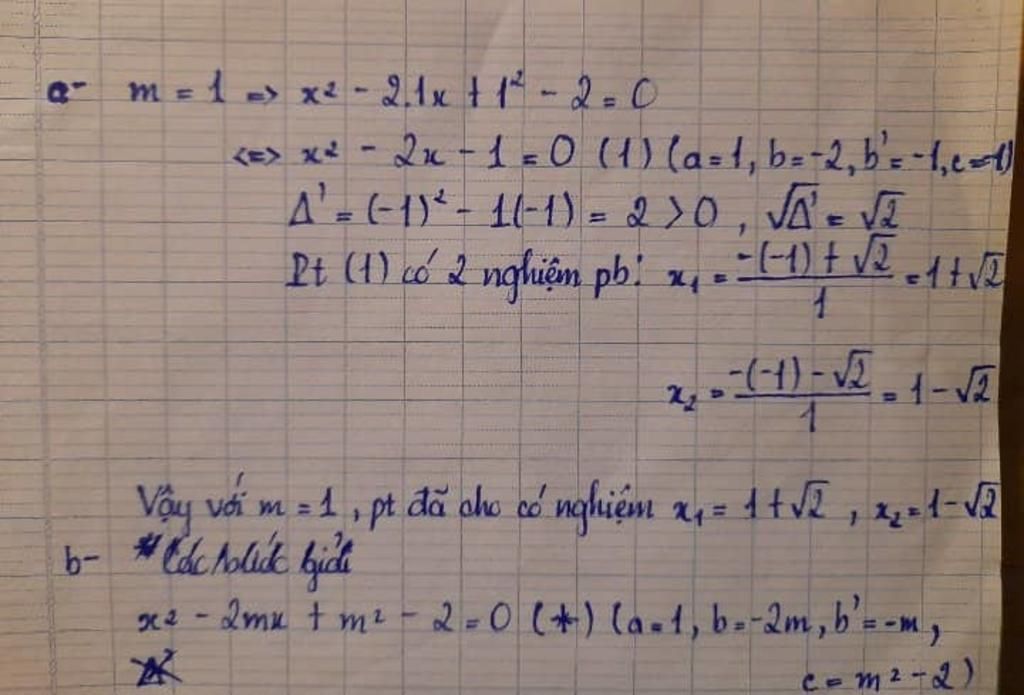 a- m = 1 => x² - 2.1x + 1² - 2 = 0
<=> x² - 2x - 1 = 0 (1) (a=1, b=-2, b'=-1, c=-1)
Δ' = (-1)² - 1(-1) = 2 > 0, √Δ' = √2
Pt (1) có 2 nghiệm pb: x₁ = \frac{-(-1) + √2}{1} = 1 + √2
x₂ = \frac{-(-1) - √2}{1} = 1 - √2
Vậy với m = 1, pt đã cho có nghiệm x₁ = 1 + √2, x₂ = 1 - √2
b- * Các bước giải
x² - 2mx + m² - 2 = 0 (*) (a=1, b=-2m, b'=-m,
c = m² - 2)